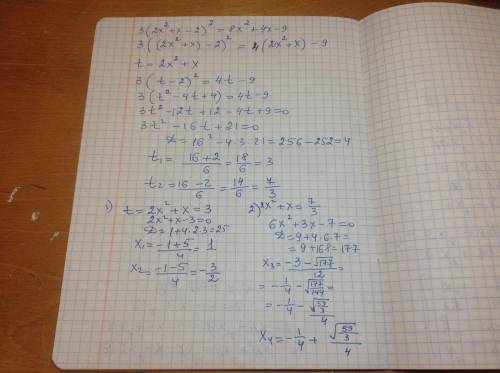 3(2x²+x-2)² = 8x²+4x-9
3((2x²+x)-2)² = 4(2x²+x)-9
t = 2x²+x
3(t-2)² = 4t-9
3(t²-4t+4) = 4t-9
3t²-12t+12-4t+9=0
3t²-16t+21=0
D=16²-4·3·21=256-252=4
t₁ = (16+2)/6 = 18/6 = 3
t₂ = (16-2)/6 = 14/6 = 7/3
1) t=2x²+x=3
2x²+x-3=0
D=1+4·2·3=25
x₁ = (-1+5)/4 = 1
x₂ = (-1-5)/4 = -3/2
2) 2x²+x = 7/3
6x²+3x-7=0
D=9+4·6·7=
=9+168=177
x₃ = (-3-√177)/12 =
= -1/4 - √(177/144) =
= -1/4 - √(59/3)/4
x₄ = -1/4 + √(59/3)/4